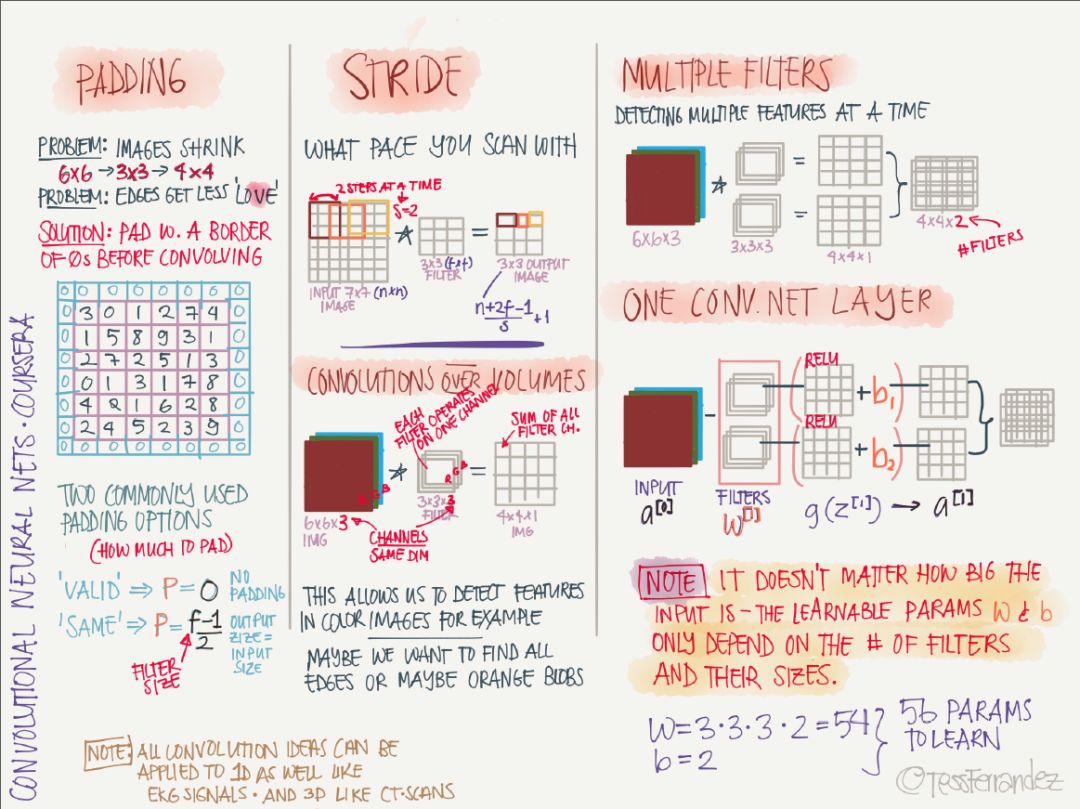 CONVOLUTIONAL NEURAL NETS · COURSERA
PADDING
PROBLEM: IMAGES SHRINK
6x6 → 3x3 → 4x4
PROBLEM: EDGES GET LESS 'LOVE'
SOLUTION: PAD W. A BORDER
OF 0s BEFORE CONVOLVING
0 0 0 0 0 0 0 0
0 3 0 1 2 7 4 0
0 1 5 8 9 3 1 0
0 2 7 2 5 1 3 0
0 0 1 3 1 7 8 0
0 4 2 1 6 2 8 0
0 2 4 5 2 3 9 0
0 0 0 0 0 0 0 0
TWO COMMONLY USED
PADDING OPTIONS
(HOW MUCH TO PAD)
'VALID' ⇒ P = 0 NO
PADDING
'SAME' ⇒ P = f-1/2 OUTPUT
SIZE =
INPUT
SIZE
FILTER
SIZE
NOTE: ALL CONVOLUTION IDEAS CAN BE
APPLIED TO 1D AS WELL LIKE
EKG SIGNALS · AND 3D LIKE CT-SCANS
STRIDE
WHAT PACE YOU SCAN WITH
2 STEPS AT A TIME
S=2
* =
INPUT 7x7 (n×n)
IMAGE
3x3 (f×f)
FILTER
3x3 OUTPUT
IMAGE
n+2f-1/s +1
CONVOLUTIONS OVER VOLUMES
EACH
FILTER OPERATES
ON ONE CHANNEL
SUM OF ALL
FILTER CH.
R G B
* R G B =
6x6x3
IMG
3x3x3
FILTER
4x4x1
IMG
CHANNELS
SAME DIM
THIS ALLOWS US TO DETECT FEATURES
IN COLOR IMAGES FOR EXAMPLE
MAYBE WE WANT TO FIND ALL
EDGES OR MAYBE ORANGE BLOBS
MULTIPLE FILTERS
DETECTING MULTIPLE FEATURES AT A TIME
* =
=
6x6x3
3x3x3
4x4x1
4x4x2
#FILTERS
ONE CONV. NET LAYER
RELU
( + b1)
RELU
( + b2)
INPUT
a[0]
FILTERS
W[1]
g(z[1]) → a[1]
NOTE IT DOESN'T MATTER HOW BIG THE
INPUT IS - THE LEARNABLE PARAMS W & b
ONLY DEPEND ON THE # OF FILTERS
AND THEIR SIZES.
W = 3·3·3·2 = 54
b = 2
} 56 PARAMS
TO LEARN
©TessFerrandez